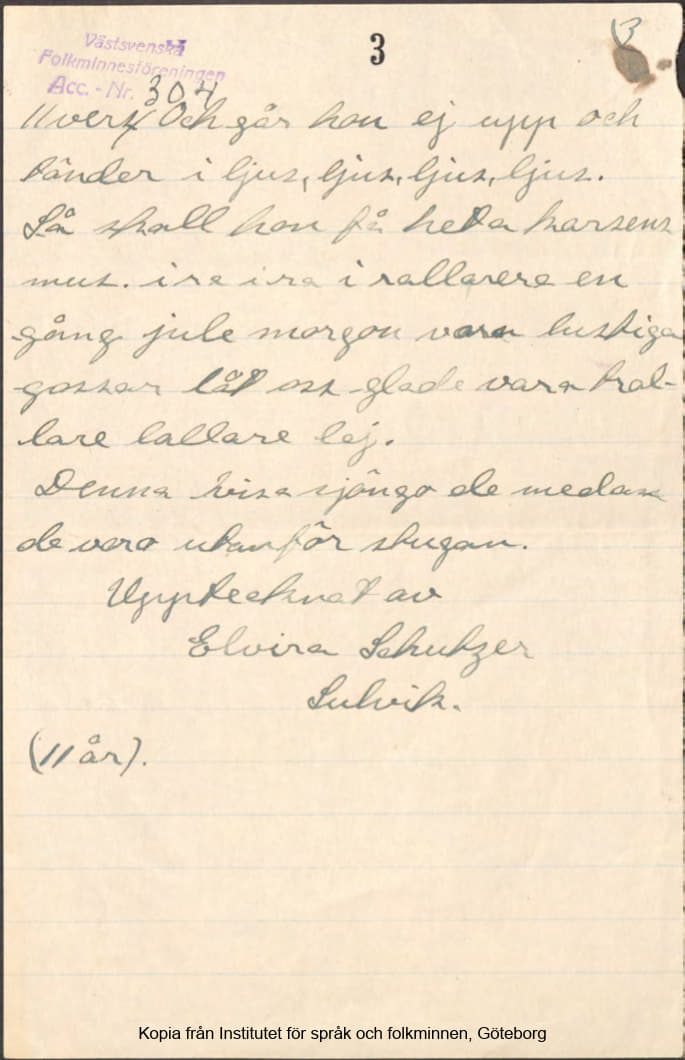 3
3
Västsvenska
Folkminnesföreningen
Acc. - Nr. 304
11 vers Och går hon ej upp och
tänder i ljus, ljus, ljus, ljus.
Så skall hon få heta karsens
mus. i ra i ra i rallarera en
gång jule morgon vara lustiga
gossar låt oss glade vara tral-
lare lallare lej.
Denna visa sjöngo de medan
de voro utanför stugan.
Upptecknat av
Elvira Schutzer
Sulvik.
(11 år).
Kopia från Institutet för språk och folkminnen, Göteborg